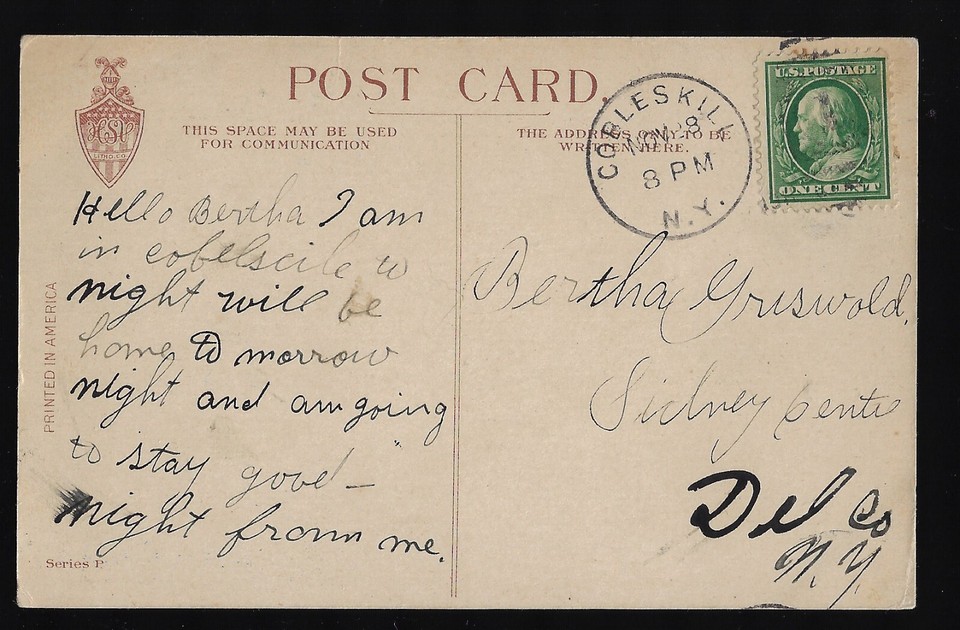 POST CARD
THIS SPACE MAY BE USED
FOR COMMUNICATION
THE ADDRESS ONLY TO BE
WRITTEN HERE.
HSV
LITHO. CO.
COBLESKILL
NOV 8
8 PM
N.Y.
U.S. POSTAGE
ONE CENT
Hello Bertha I am
in cobelscile to
night will be
home to morrow
night and am going
to stay good –
night from me.
Bertha Griswold,
Sidney Cente
Del Co
N.Y.
PRINTED IN AMERICA
Series P